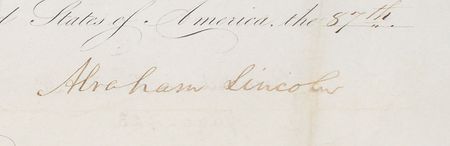 States of America, the 87th
Abraham Lincoln